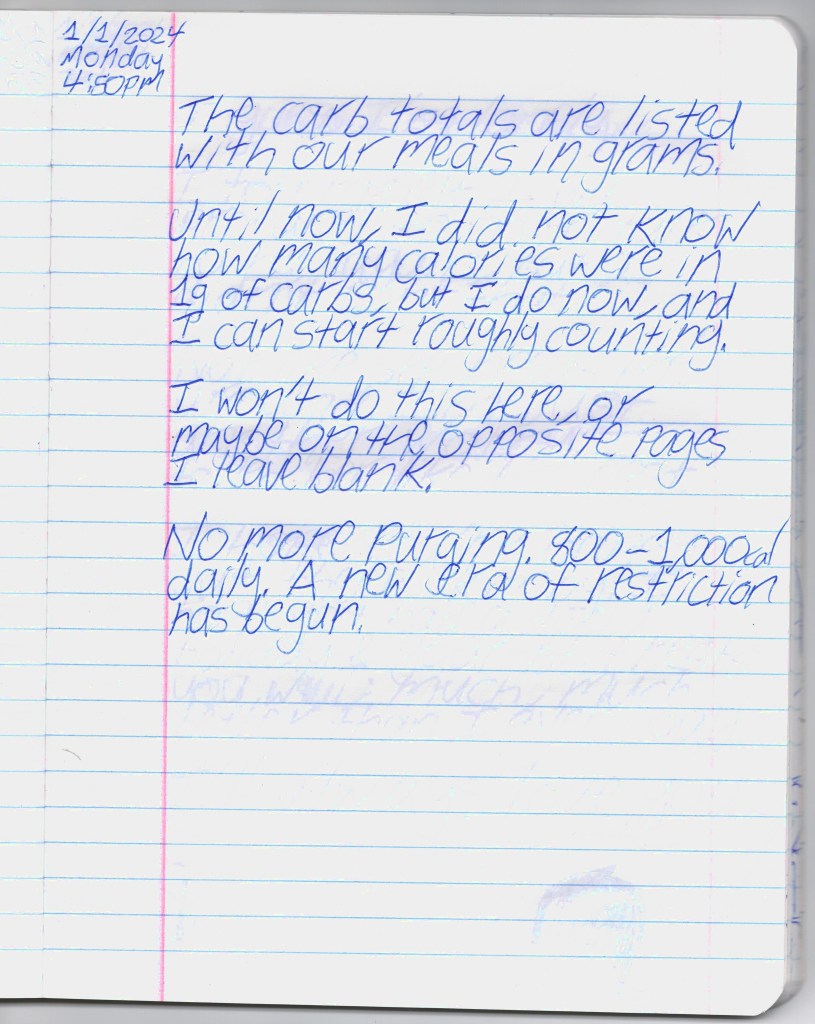 1/1/2024
Monday
4:50PM
The carb totals are listed
with our meals in grams.
Until now, I did not know
how many calories were in
1g of carbs, but I do now, and
I can start roughly counting.
I won't do this here, or
maybe on the opposite pages
I leave blank.
No more purging. 800-1,000cal
daily. A new era of restriction
has begun.